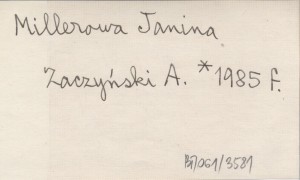 Millerowa Janina
Zaczyński A. *1985 f.
BJ/061/3581